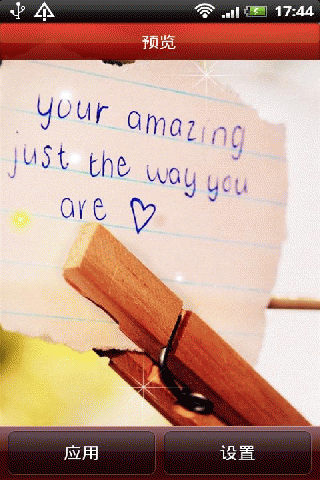 17:44
预览
your amazing
just the way you
are ♡
应用
设置